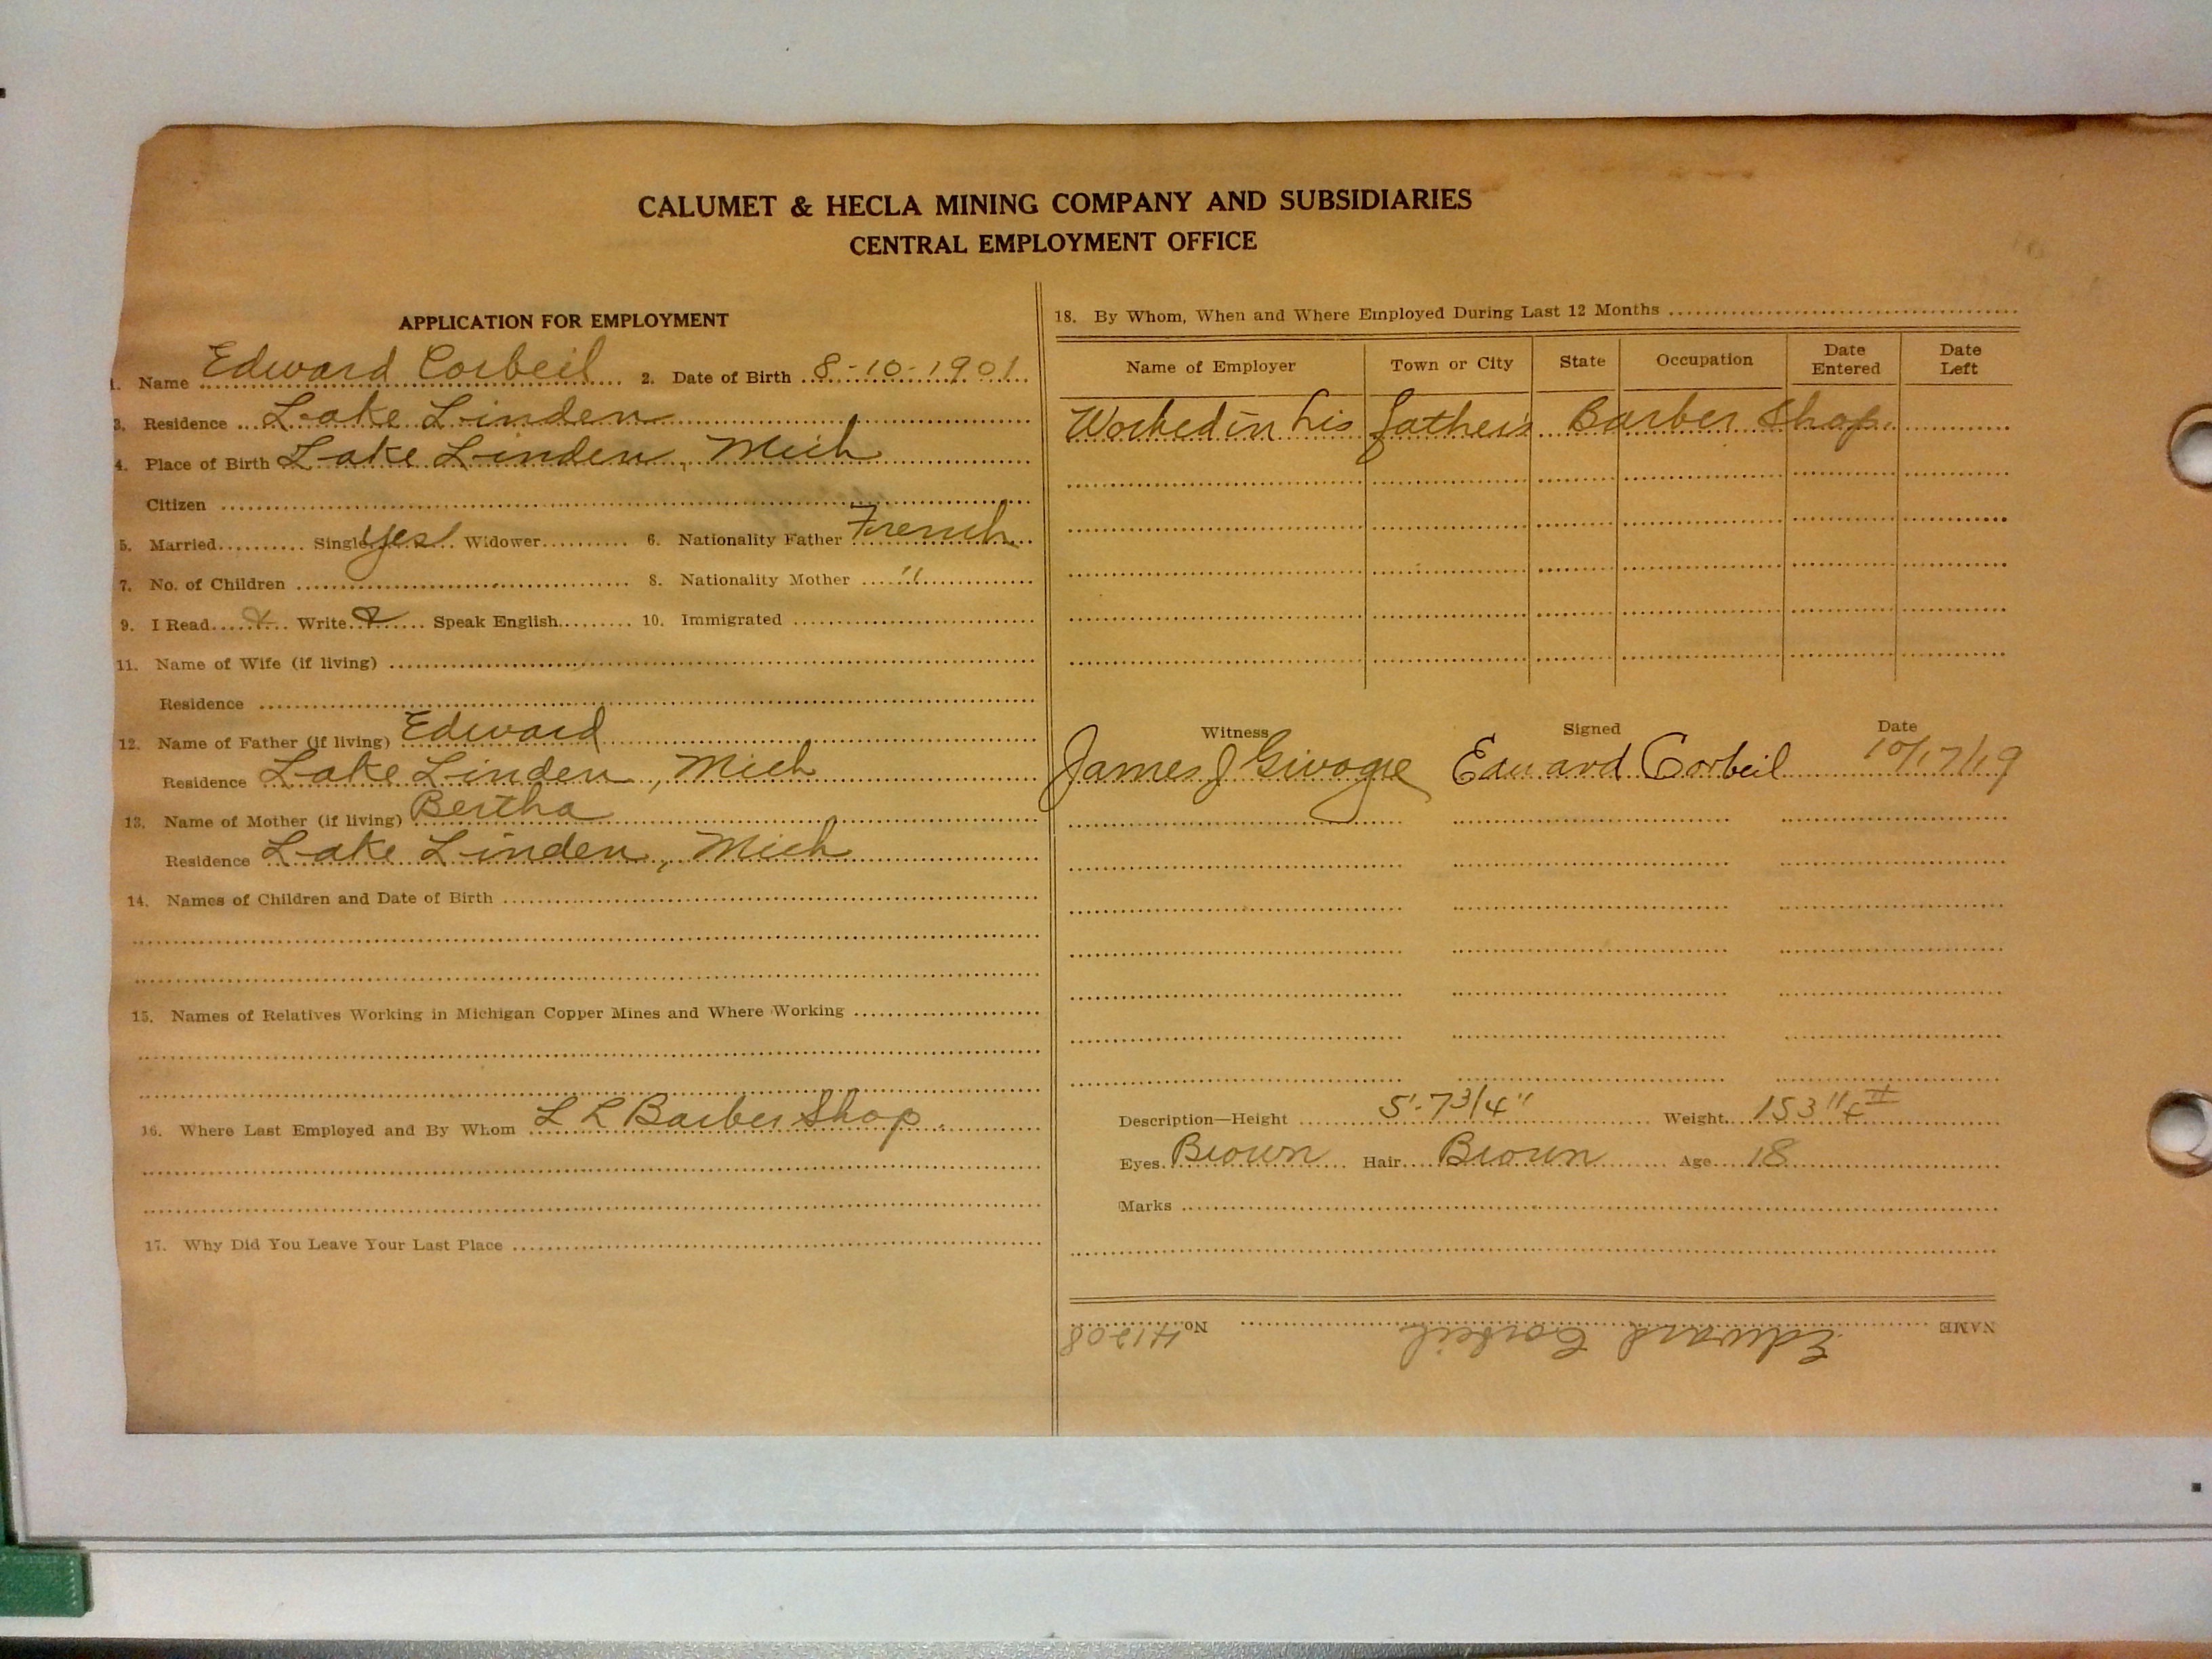 CALUMET & HECLA MINING COMPANY AND SUBSIDIARIES
CENTRAL EMPLOYMENT OFFICE
APPLICATION FOR EMPLOYMENT
1. Name Edward Corbeil 2. Date of Birth 8-10-1901
3. Residence Lake Linden
4. Place of Birth Lake Linden, Mich
Citizen
5. Married Single yes Widower 6. Nationality Father French
7. No. of Children 8. Nationality Mother "
9. I Read Write Speak English 10. Immigrated
11. Name of Wife (if living)
Residence
12. Name of Father (if living) Edward
Residence Lake Linden, Mich
13. Name of Mother (if living) Bertha
Residence Lake Linden, Mich
14. Names of Children and Date of Birth
15. Names of Relatives Working in Michigan Copper Mines and Where Working
16. Where Last Employed and By Whom L L Barber Shop.
17. Why Did You Leave Your Last Place
18. By Whom, When and Where Employed During Last 12 Months
Name of Employer Town or City State Occupation Date Entered Date Left
Worked in his father's Barber Shop.
Witness Signed Date
James J Edward Corbeil 10/17/19
Description—Height 5'-7 3/4" Weight 153
Eyes Brown Hair Brown Age 18
Marks
NAME Edward Corbeil No. 41208